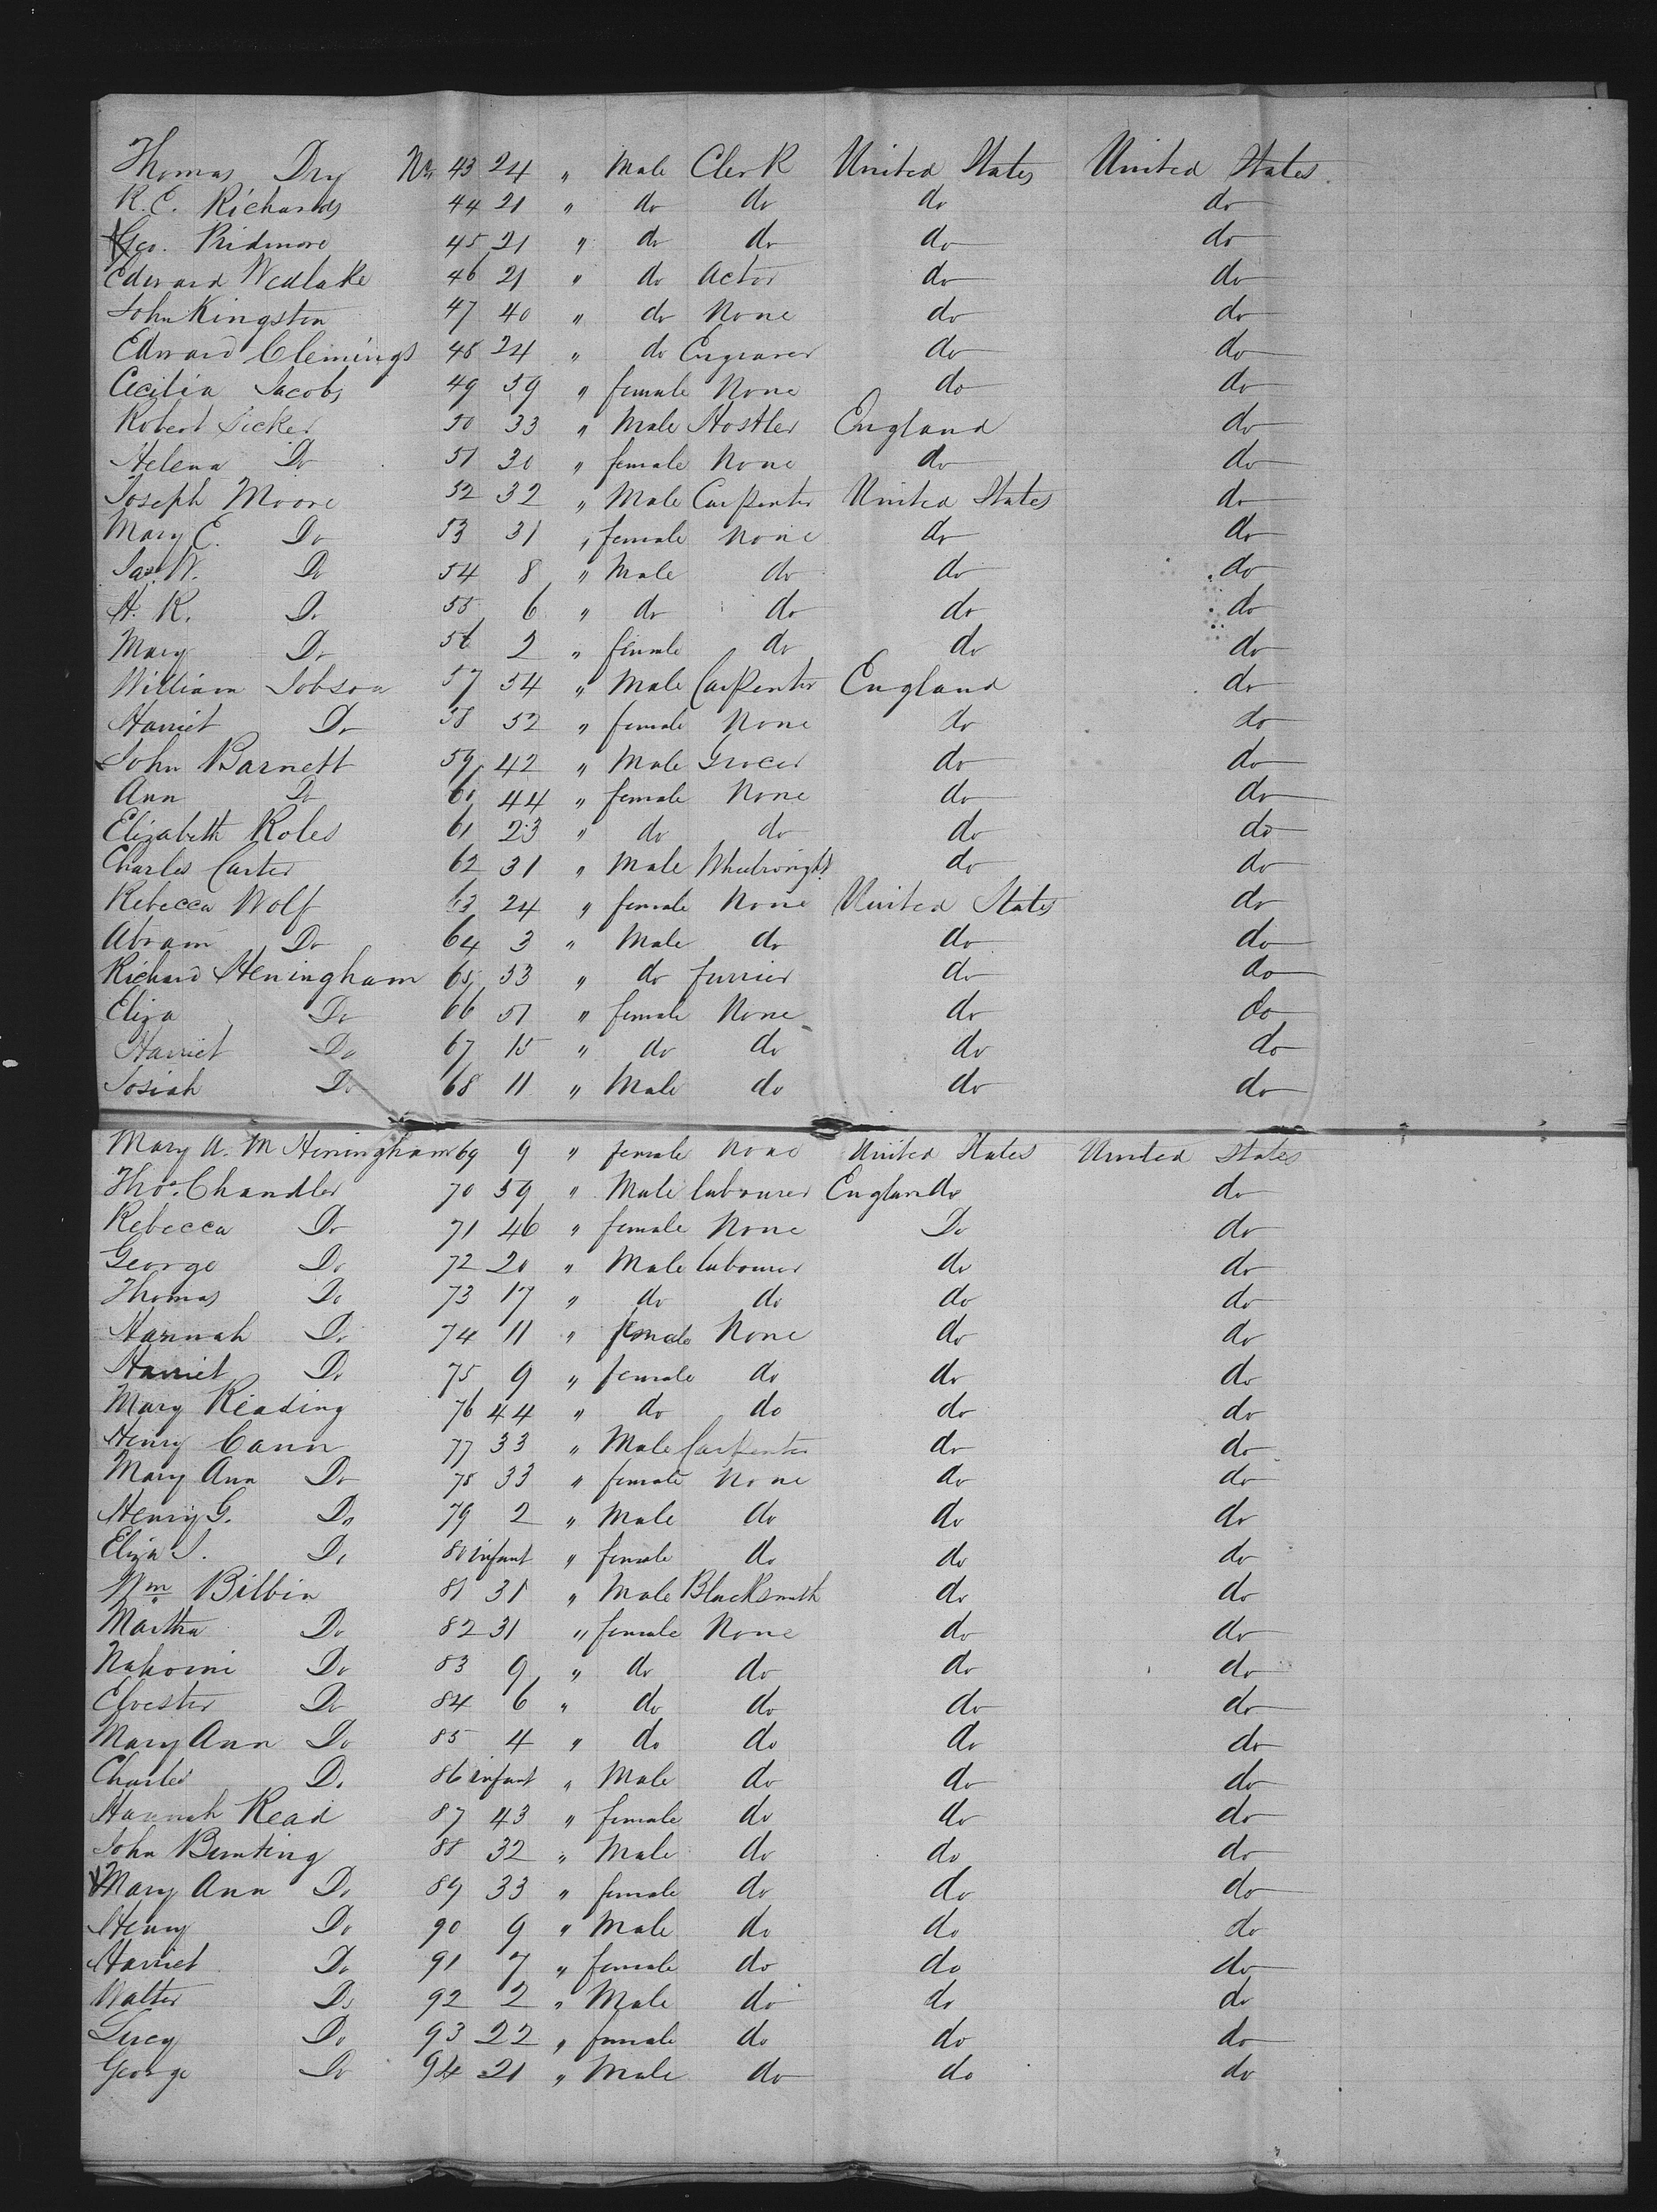 Thomas Dry No. 43 24 " Male Clerk United States United States
R. E. Richards 44 21 " do do do do
Geo. Ridmore 45 21 " do do do do
Edward Wedlake 46 21 " do Actor do do
John Kingston 47 40 " do None do do
Edward Clemings 48 24 " do Engraver do do
Cecilia Jacobs 49 59 " female None do do
Robert Sicker 50 33 " Male Hostler England do
Helena Do 51 30 " female None do do
Joseph Moore 52 32 " Male Carpenter United States do
Mary E. Do 53 31 " female None do do
Jas. W. Do 54 8 " Male do do do
H. R. Do 55 6 " do do do do
Mary Do 56 2 " female do do do
William Jobson 57 54 " Male Carpenter England do
Harriet Do 58 52 " female None do do
John Barnett 59 42 " Male Grocer do do
Ann Do 60 44 " female None do do
Elizabeth Roles 61 23 " do do do do
Charles Carter 62 31 " Male Wheelwright do do
Rebecca Wolf 63 24 " female None United States do
Abram Do 64 3 " Male do do do
Richard Heningham 65 53 " do furrier do do
Eliza Do 66 51 " female None do do
Harriet Do 67 15 " do do do do
Josiah Do 68 11 " Male do do do
Mary A. M Heningham 69 9 " female None United States United States
Thos. Chandler 70 59 " Male labourer England do
Rebecca Do 71 46 " female None Do do
George Do 72 20 " Male labourer do do
Thomas Do 73 17 " do do do do
Hannah Do 74 11 " female None do do
Harriet Do 75 9 " female do do do
Mary Reading 76 44 " do do do do
Henry Cann 77 33 " Male Carpenter do do
Mary Ann Do 78 33 " female None do do
Henry G. Do 79 2 " Male do do do
Eliza J. Do 80 infant " female do do do
Wm Bilbin 81 31 " Male Blacksmith do do
Martha Do 82 31 " female None do do
Nahomi Do 83 9 " do do do do
Elvester Do 84 6 " do do do do
Mary Ann Do 85 4 " do do do do
Charles Do 86 infant " Male do do do
Hannah Read 87 43 " female do do do
John Bunting 88 32 " Male do do do
Mary Ann Do 89 33 " female do do do
Henry Do 90 9 " Male do do do
Harriet Do 91 7 " female do do do
Walter Do 92 2 " Male do do do
Lucy Do 93 22 " female do do do
George Do 94 21 " Male do do do